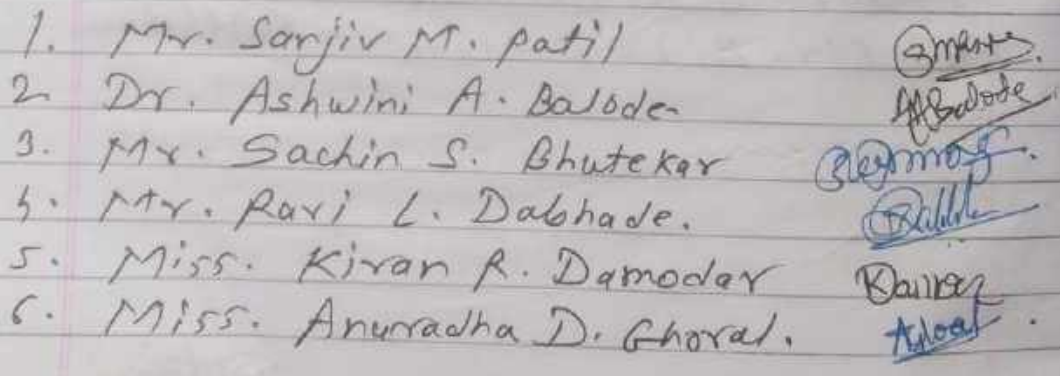 1. Mr. Sanjiv M. Patil
2 Dr. Ashwini A. Balode AABalode
3. Mr. Sachin S. Bhutekar
4. Mr. Ravi L. Dabhade.
5. Miss. Kiran R. Damodar
6. Miss. Anuradha D. Ghoral.